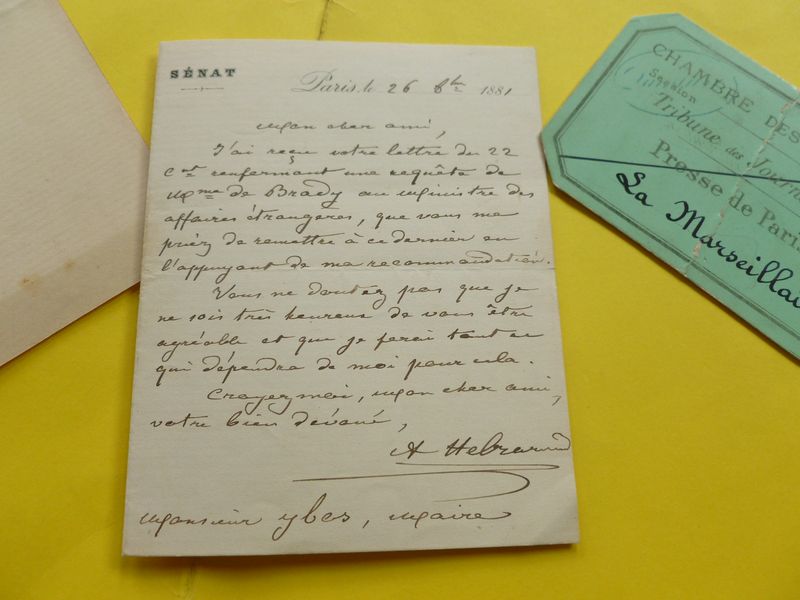 SÉNAT
Paris, le 26 8bre 1881
Mon cher ami,
J'ai reçu votre lettre du 22
ct renfermant une requête de
Mme de Brady au Ministre des
affaires étrangères, que vous me
priez de remettre à ce dernier en
l'appuyant de ma recommandation.
Vous ne doutez pas que je
ne sois très heureux de vous être
agréable et que je ferai tout ce
qui dépendra de moi pour cela.
Croyez moi, mon cher ami,
votre bien dévoué,
A Hebrard
Monsieur Ybes, Maire
CHAMBRE DES
Session
Tribune des Journ
Presse de Paris
La Marseillai